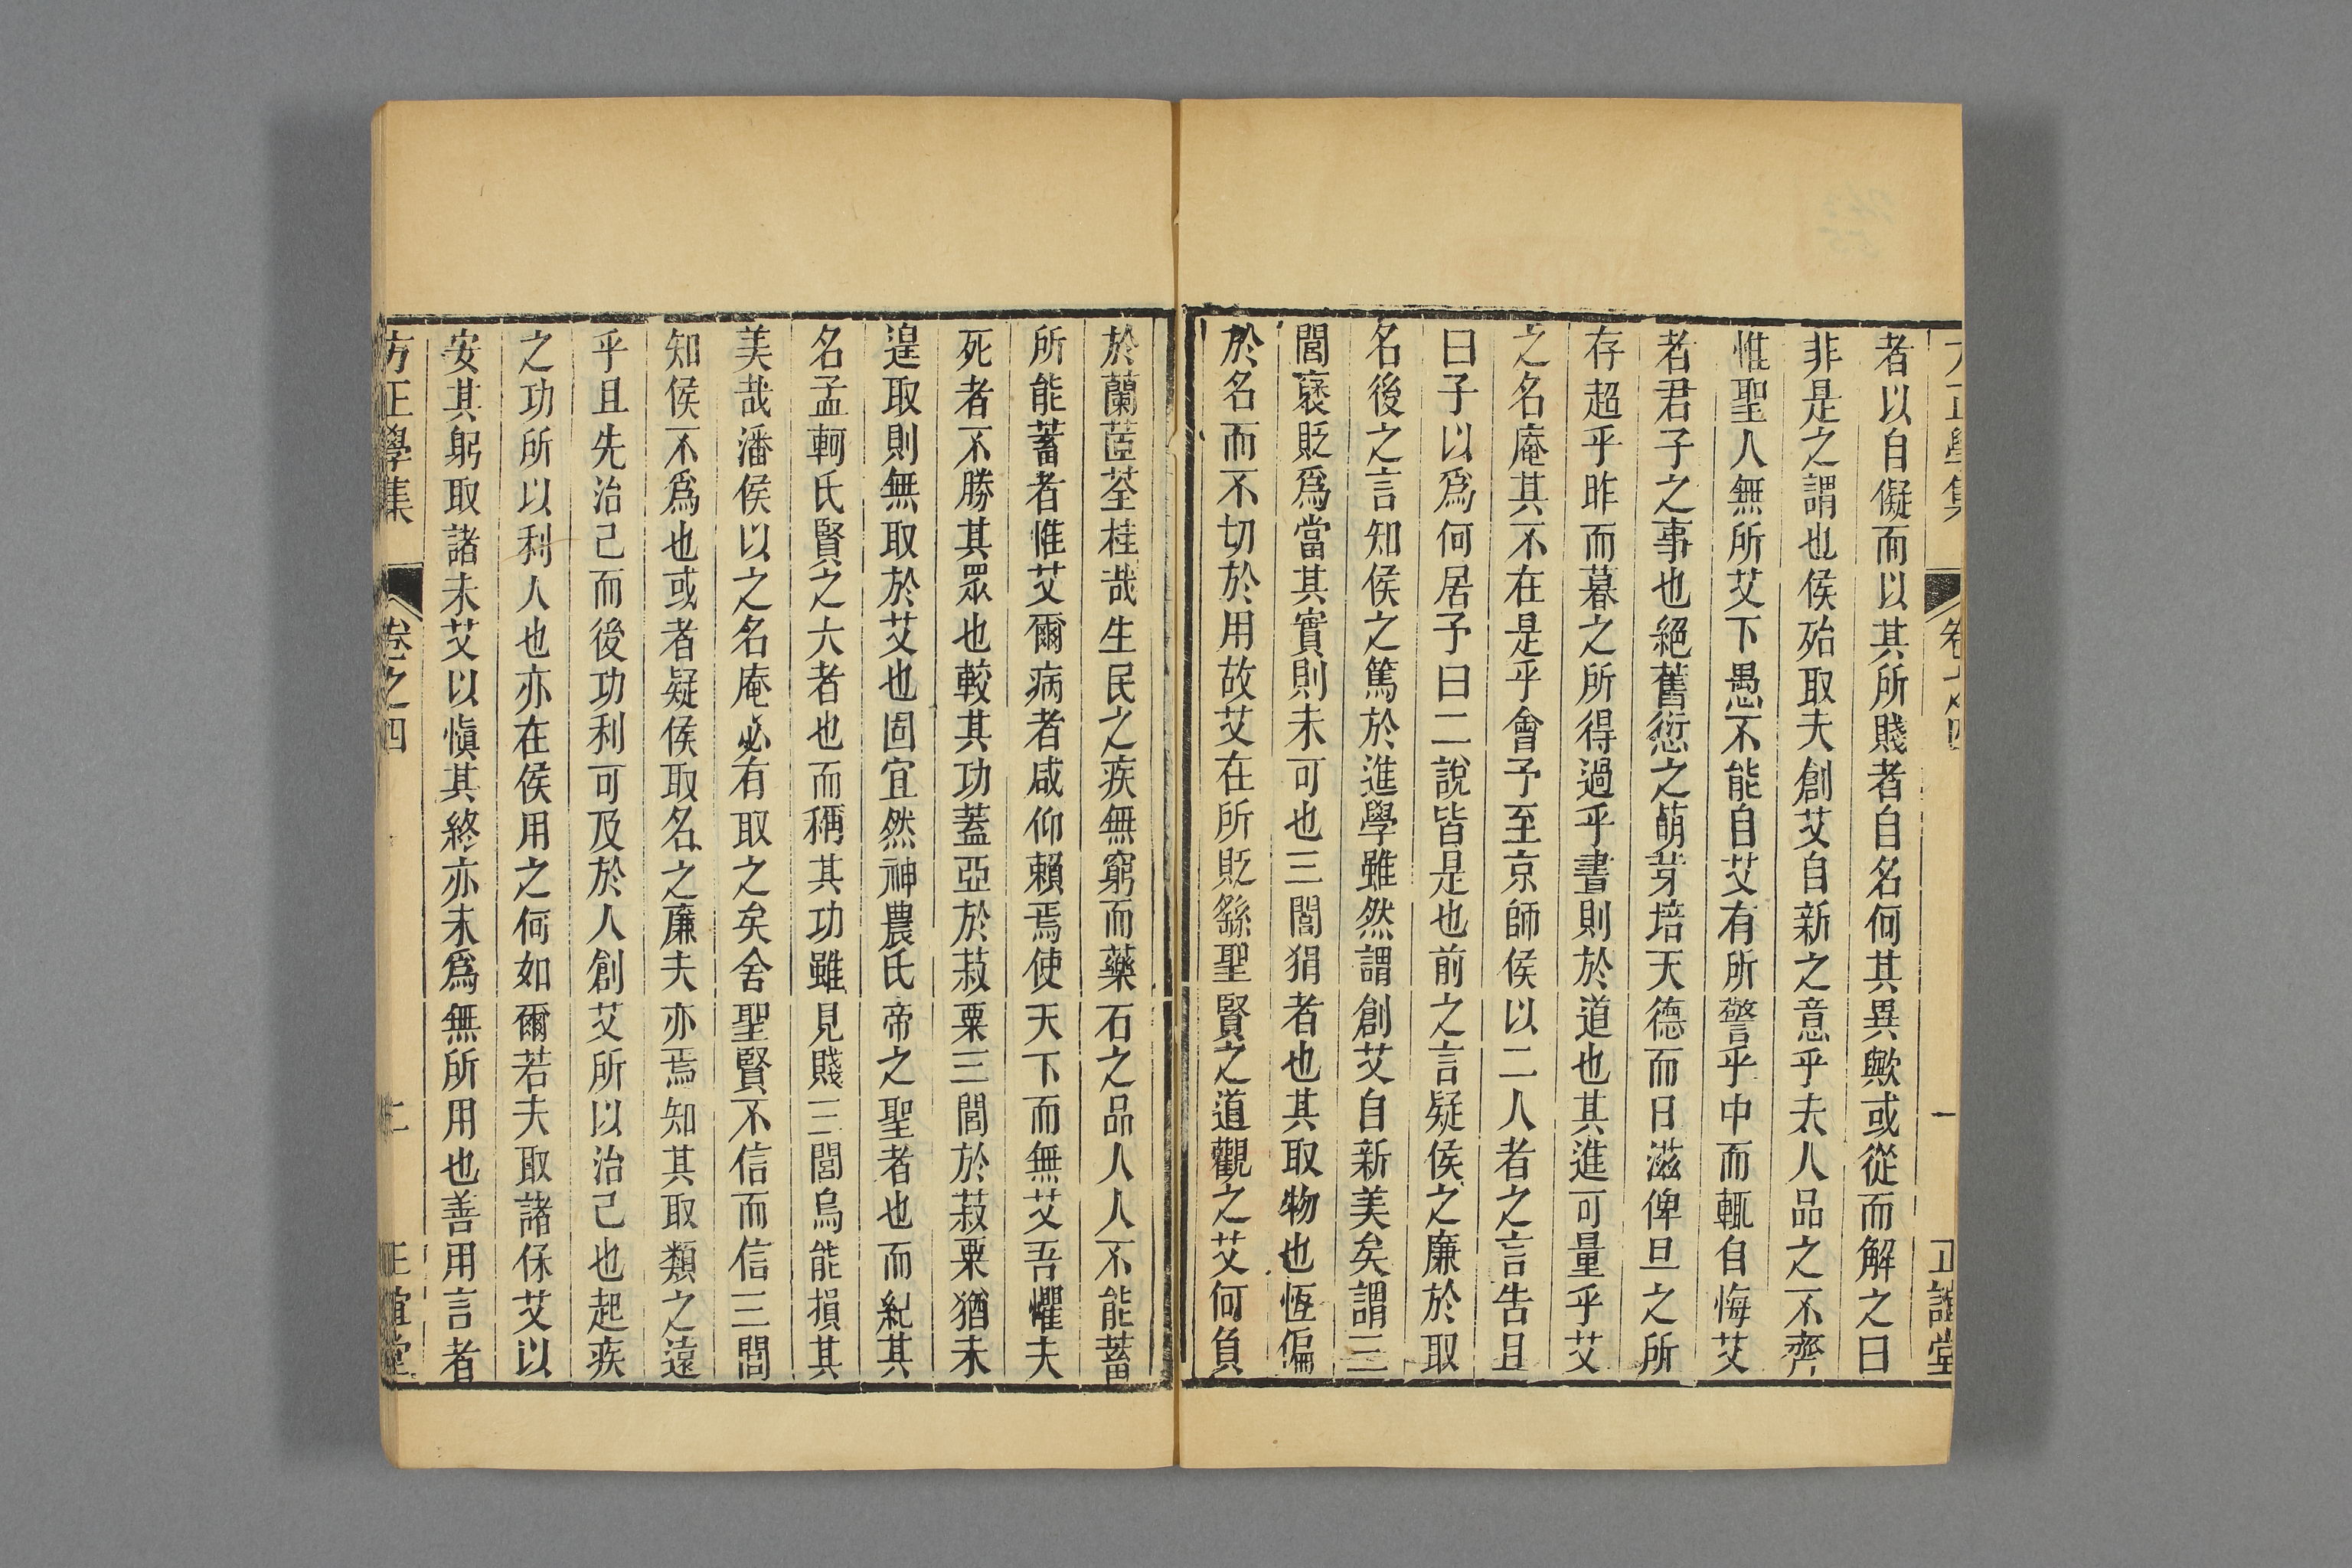 方正學集 卷之四 一 正誼堂
者以自儗而以其所賤者自名何其異歟或從而解之曰
非是之謂也侯殆取夫創艾自新之意乎夫人品之不齊
惟聖人無所艾下愚不能自艾有所警乎中而輒自悔艾
者君子之事也絕舊愆之萌芽培天德而日滋俾旦之所
存超乎昨而暮之所得過乎晝則於道也其進可量乎艾
之名庵其不在是乎會予至京師侯以二人者之言告且
曰子以爲何居予曰二說皆是也前之言疑侯之廉於取
名後之言知侯之篤於進學雖然謂創艾自新美矣謂三
閭褒貶爲當其實則未可也三閭狷者也其取物也恆偏
於名而不切於用故艾在所貶繇聖賢之道觀之艾何負
於蘭茝荃桂哉生民之疾無窮而藥石之品人人不能蓄
所能蓄者惟艾爾病者咸仰賴焉使天下而無艾吾懼夫
死者不勝其眾也較其功蓋亞於菽粟三閭於菽粟猶未
遑取則無取於艾也固宜然神農氏帝之聖者也而紀其
名孟軻氏賢之大者也而稱其功雖見賤三閭烏能損其
美哉潘侯以之名庵必有取之矣舍聖賢不信而信三閭
知侯不爲也或者疑侯取名之廉夫亦焉知其取類之遠
乎且先治己而後功利可及於人創艾所以治己也起疾
之功所以利人也亦在侯用之何如爾若夫取諸保艾以
安其躬取諸未艾以慎其終亦未爲無所用也善用言者
方正學集 卷之四 二 正誼堂